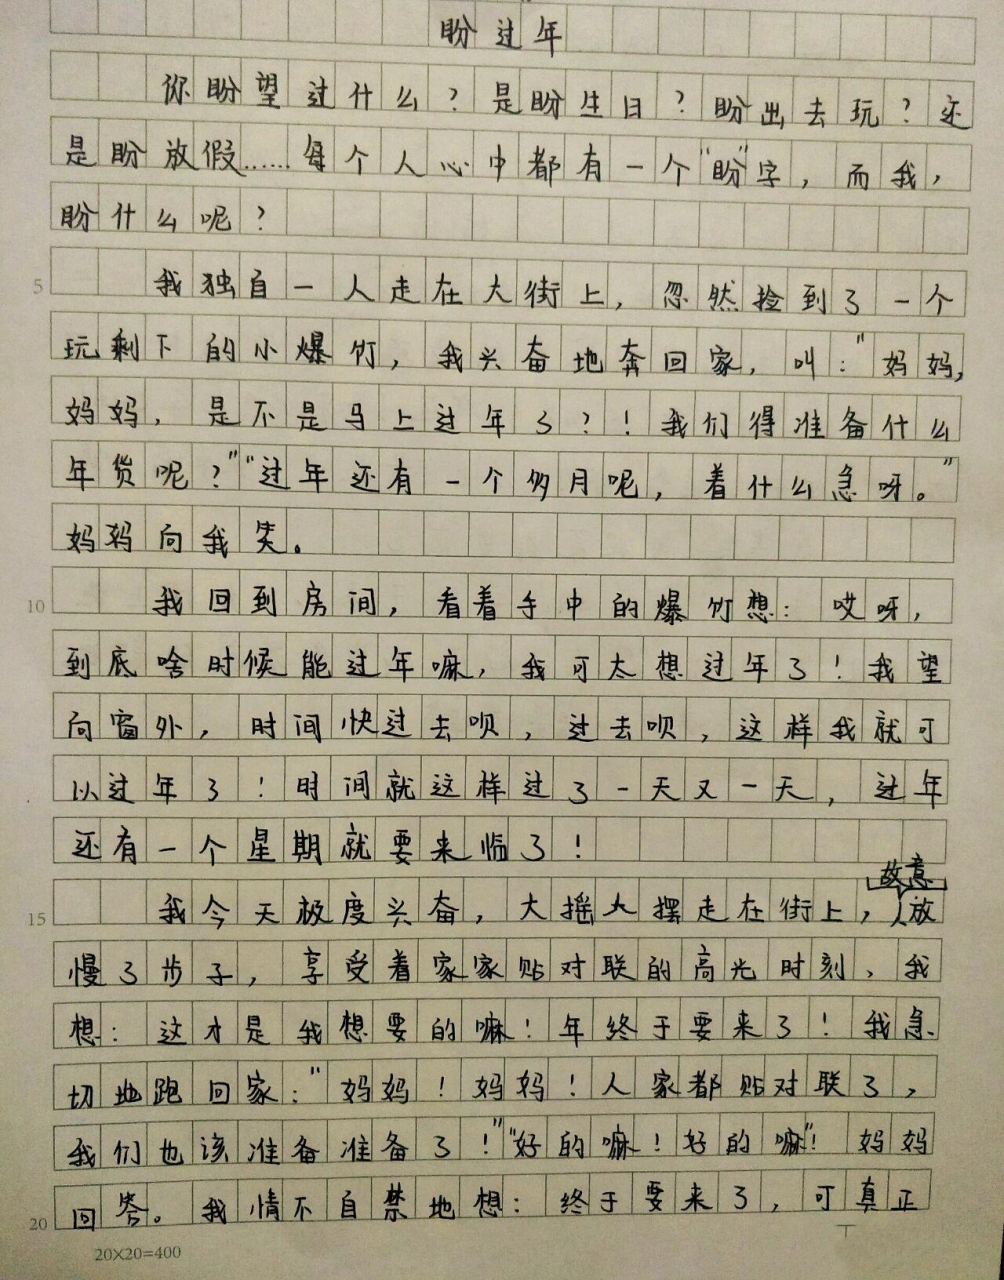 盼过年
你盼望过什么？是盼生日？盼出去玩？还
是盼放假……每个人心中都有一个"盼"字，而我，
盼什么呢？
5 我独自一人走在大街上，忽然捡到了一个
玩剩下的小爆竹，我兴奋地奔回家，叫："妈妈，
妈妈，是不是马上过年了？！我们得准备什么
年货呢？""过年还有一个多月呢，着什么急呀。"
妈妈向我笑。
10 我回到房间，看着手中的爆竹想：哎呀，
到底啥时候能过年嘛，我可太想过年了！我望
向窗外，时间快过去呗，过去呗，这样我就可
以过年了！时间就这样过了一天又一天，过年
还有一个星期就要来临了！
15 我今天极度兴奋，大摇大摆走在街上，故意放
慢了步子，享受着家家贴对联的高光时刻，我
想：这才是我想要的嘛！年终于要来了！我急
切地跑回家："妈妈！妈妈！人家都贴对联了，
我们也该准备准备了！""好的嘛！好的嘛"！妈妈
20 回答。我情不自禁地想：终于要来了，可真正
20×20=400